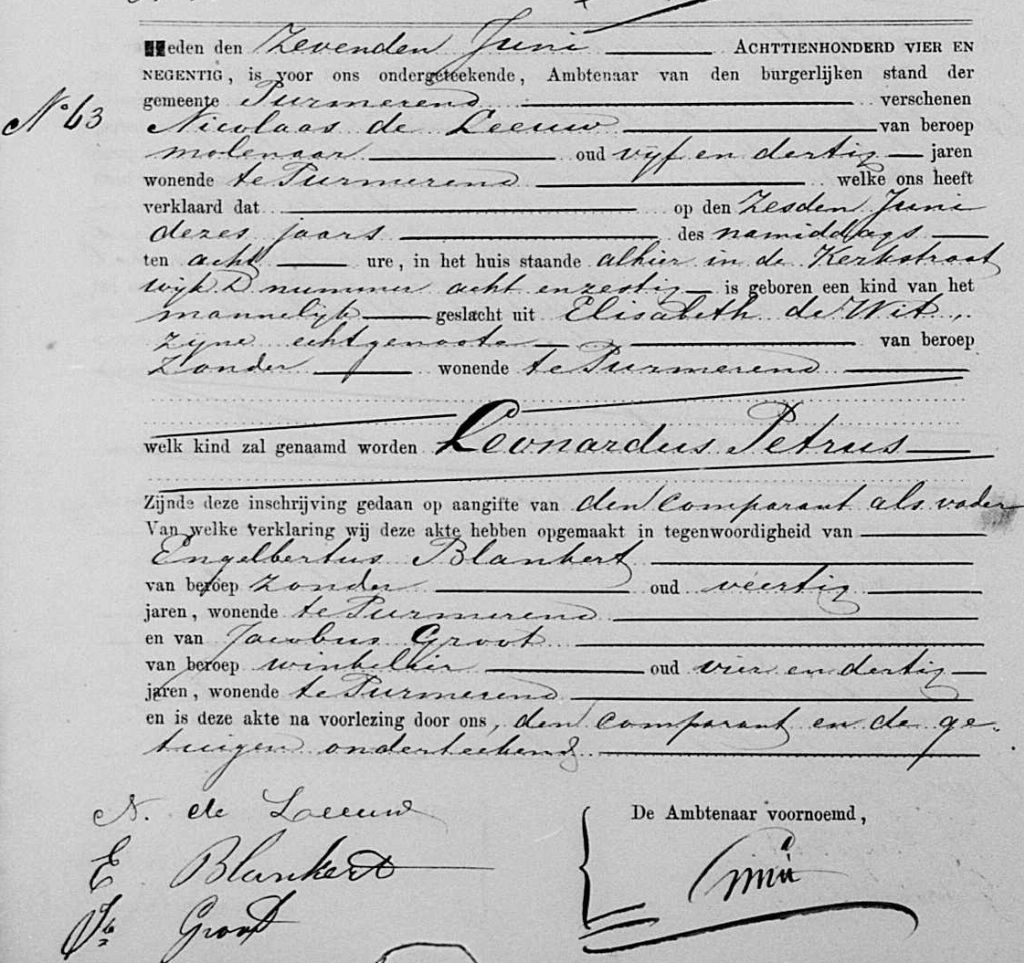 Heden den Zevenden Juni ACHTTIENHONDERD VIER EN
NEGENTIG, is voor ons ondergeteekende, Ambtenaar van den burgerlijken stand der
gemeente Purmerend verschenen
No 63 Nicolaas de Leeuw van beroep
molenaar oud vijf en dertig jaren
wonende te Purmerend welke ons heeft
verklaard dat op den Zesden Juni
dezes jaars des namiddags
ten acht ure, in het huis staande alhier in de Kerkstraat
wijk D nummer acht en zestig is geboren een kind van het
mannelijk geslacht uit Elisabeth de Wit,
zijne echtgenoote van beroep
Zonder wonende te Purmerend
welk kind zal genaamd worden Leonardus Petrus
Zijnde deze inschrijving gedaan op aangifte van den comparant als vader
Van welke verklaring wij deze akte hebben opgemaakt in tegenwoordigheid van
Engelbertus Blankert
van beroep zonder oud veertig
jaren, wonende te Purmerend
en van Jacobus Groot
van beroep winkelier oud vier en dertig
jaren, wonende te Purmerend
en is deze akte na voorlezing door ons, den comparant en de ge-
tuigen onderteekend
N. de Leeuw
De Ambtenaar voornoemd,
E Blankert
Jb Groot